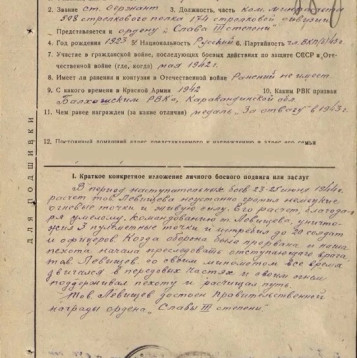 2. Звание ст. сержант 3. Должность, часть ком. миномета
508 стрелкового полка 174 стрелковой дивизии
Представляется к ордену „Слава III степени"
4. Год рождения 1923 5. Национальность Русский 6. Партийность
7. Участие в гражданской войне, последующих боевых действиях по защите СССР и Отечественной войне (где, когда) мая 1942г.
8. Имеет ли ранения и контузии в Отечественной войне Ранений не имеет
9. С какого времени в Красной Армии 1942 10. Каким РВК призван
Балхашским РВК, Карагандинской обл.
11. Чем ранее награжден (за какие отличия) медаль „За отвагу" в 1943г.
12. Постоянный домашний адрес представляемого к награждению и адрес его семьи
для подшивки
I. Краткое конкретное изложение личного боевого подвига или заслуг
В период наступательных боев 23-25 июня 1944г.
расчет тов. Левищева неустанно громил немецкие
огневые точки и живую силу. Его расчет, благодаря
умелому командованию т. Левищева, уничто-
жил 3 пулеметные точки и истребил до 20 солдат
и офицеров. Когда оборона была прорвана и наша
пехота начала преследовать отступающего врага,
тов. Левищев со своим минометом все время
двигался в передовых частях и своим огнем
поддерживал пехоту и расчищая путь.
Тов. Левищев достоен правительственной
награды ордена „Славы III степени".